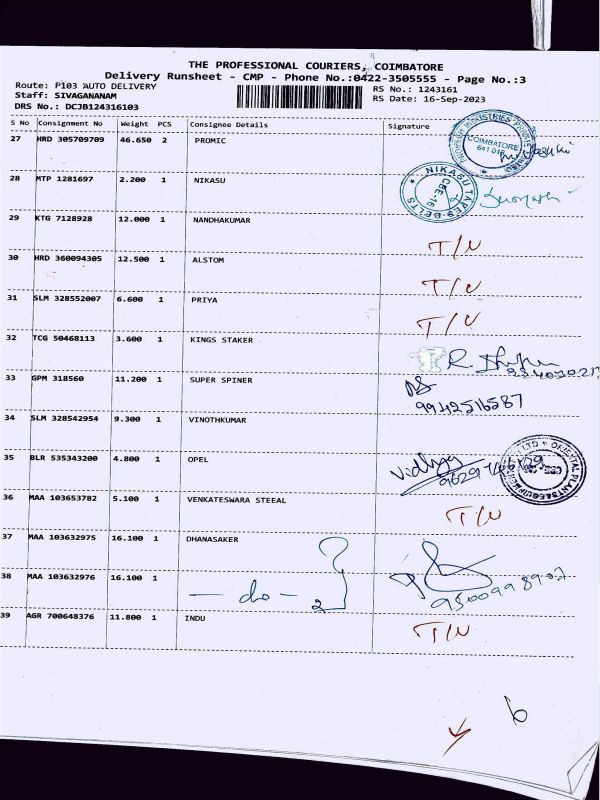 THE PROFESSIONAL COURIERS, COIMBATORE
Delivery Runsheet - CMP - Phone No.:0422-3505555 - Page No.:3
Route: P103 AUTO DELIVERY
Staff: SIVAGANANAM
DRS No.: DCJB124316103
RS No.: 1243161
RS Date: 16-Sep-2023
S No Consignment No Weight PCS Consignee Details Signature
27 HRD 305709709 46.650 2 PROMIC
COIMBATORE
641 016
28 MTP 1281697 2.200 1 NIKASU
NIKASU TAPES BELTS
CBE-16
29 KTG 7128928 12.000 1 NANDHAKUMAR T/N
30 HRD 360094305 12.500 1 ALSTOM T/N
31 SLM 328552007 6.600 1 PRIYA T/N
32 TCG 50468113 3.600 1 KINGS STAKER
33 GPM 318560 11.200 1 SUPER SPINER
9942516587
34 SLM 328542954 9.300 1 VINOTHKUMAR
35 BLR 535343200 4.800 1 OPEL Vidhya
36 MAA 103653782 5.100 1 VENKATESWARA STEEAL T/N
37 MAA 103632975 16.100 1 DHANASAKER
38 MAA 103632976 16.100 1 — do — 2
39 AGR 700648376 11.800 1 INDU T/N
6